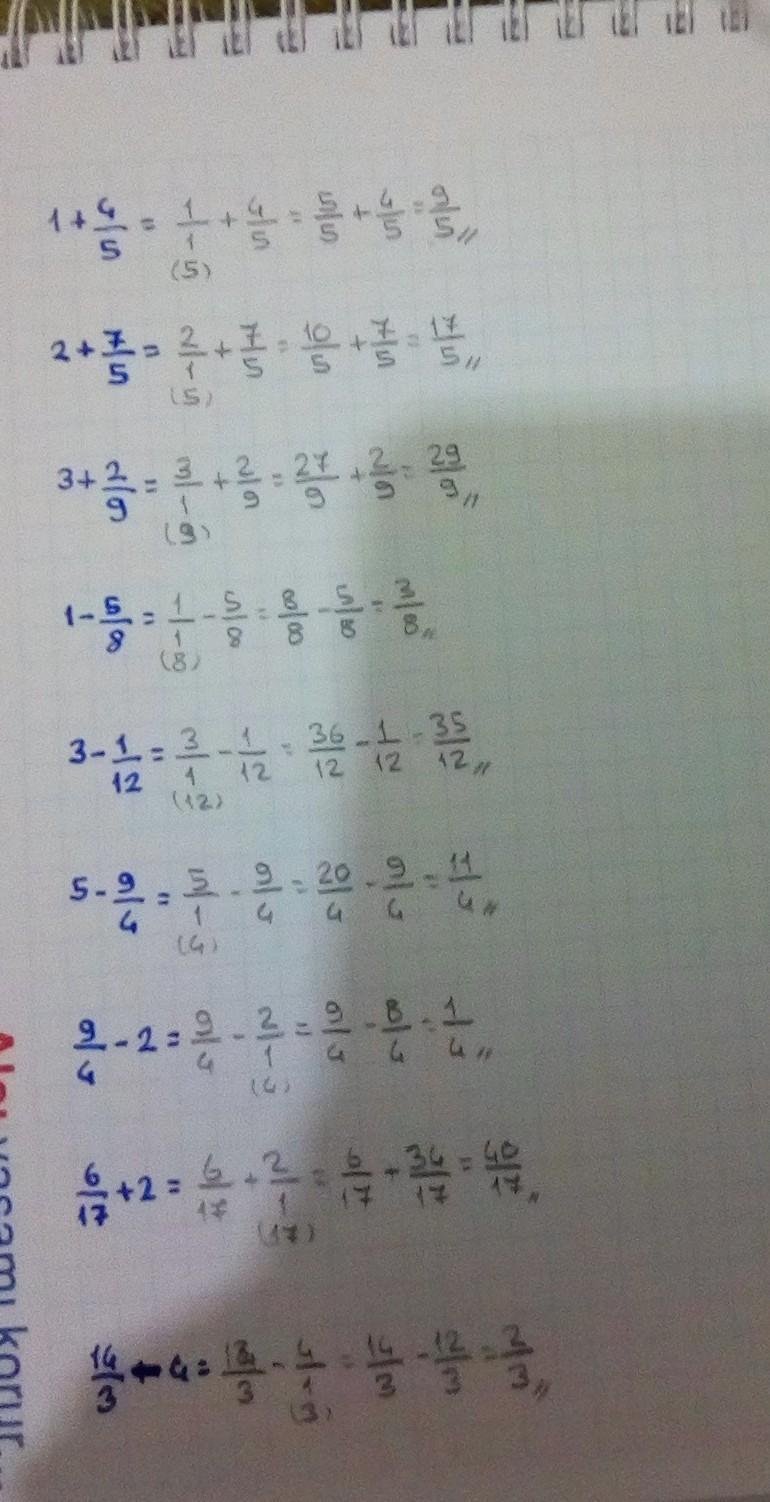 1 + 4/5 = 1/1 + 4/5 = 5/5 + 4/5 = 9/5 //
(5)
2 + 7/5 = 2/1 + 7/5 = 10/5 + 7/5 = 17/5 //
(5)
3 + 2/9 = 3/1 + 2/9 = 27/9 + 2/9 = 29/9 //
(9)
1 - 5/8 = 1/1 - 5/8 = 8/8 - 5/8 = 3/8 //
(8)
3 - 1/12 = 3/1 - 1/12 = 36/12 - 1/12 = 35/12 //
(12)
5 - 9/4 = 5/1 - 9/4 = 20/4 - 9/4 = 11/4 //
(4)
9/4 - 2 = 9/4 - 2/1 = 9/4 - 8/4 = 1/4 //
(4)
6/17 + 2 = 6/17 + 2/1 = 6/17 + 34/17 = 40/17 //
(17)
14/3 - 4 = 14/3 - 4/1 = 14/3 - 12/3 = 2/3 //
(3)
yaşamı korur